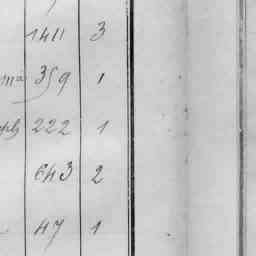 1411 3
ma 359 1
ph 222 1
643 2
47 1